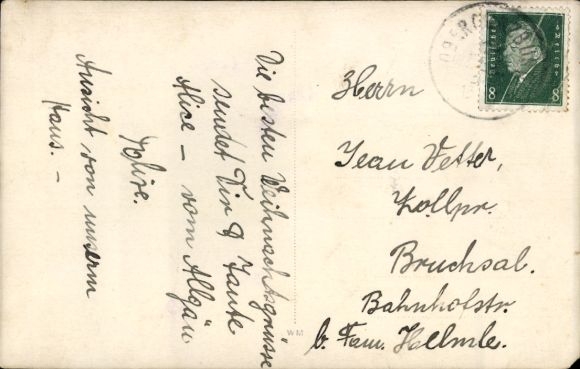 Die besten Weihnachtsgrüsse
sendet Dir & Tante
Alice – vom Allgäu
Ansicht von unserm
Haus. –
Herrn
Jean Vetter,
Zollpr.
Bruchsal.
Bahnhofstr.
b. Fam. Hellmle.
Deutsches Reich
8 8
WM